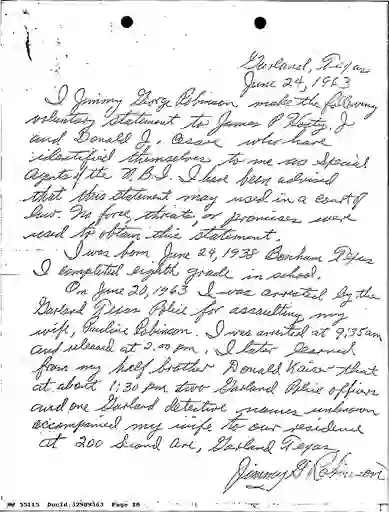 Garland, Texas
June 24, 1963
I Jimmy George Robinson make the following
voluntary statement to James P Hosty, J
and Donald J. who have
identified themselves to me as Special
Agents of the F.B.I. I have been advised
that this statement may used in a court of
law. No force, threats, or promises were
used to obtain this statement.
I was born June 24, 1938 Bonham Texas
I completed eighth grade in school.
On June 20, 1963 I was arrested by the
Garland Texas Police for assaulting my
wife, Pauline Robinson. I was arrested at 9:35 am
and released at 2:00 pm. I later learned
from my half brother Donald that
at about 1:30 pm two Garland Police officers
and one Garland detective names unknown
accompanied my wife to our residence
at 200 Second Ave, Garland Texas
Jimmy G Robinson
HW 55115 DocId:32989363 Page 18